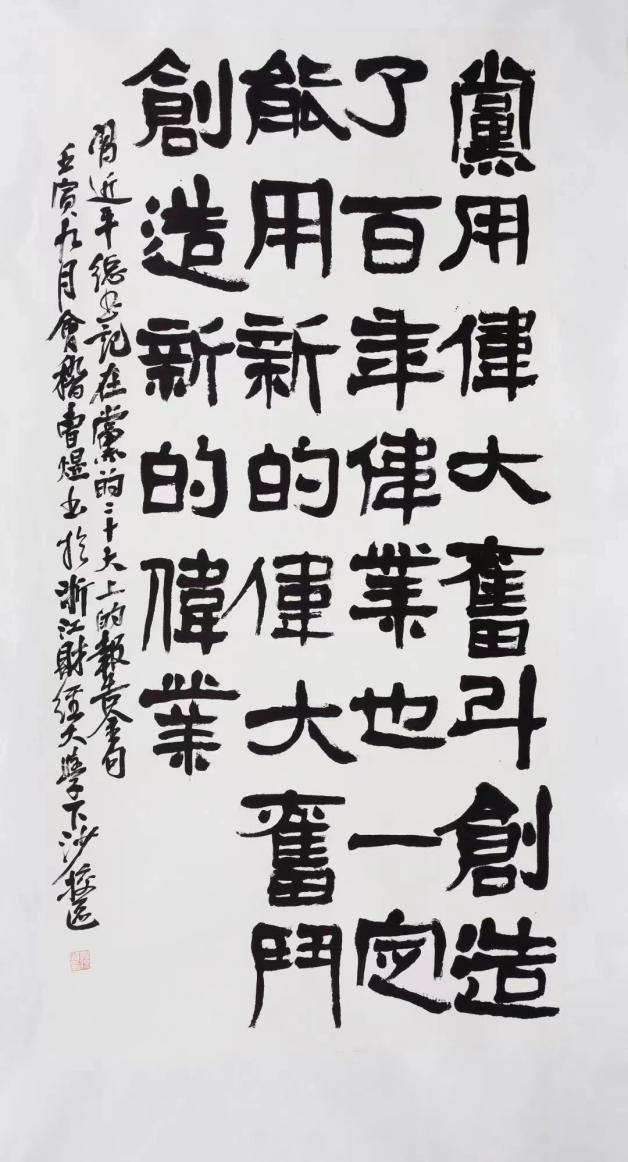 黨用偉大奮斗創造
了百年偉業也一定
能用新的偉大奮鬥
創造新的偉業
習近平總书記在黨的二十大上的報告金句
壬寅九月會稽曹煜书於浙江財經大學下沙校區